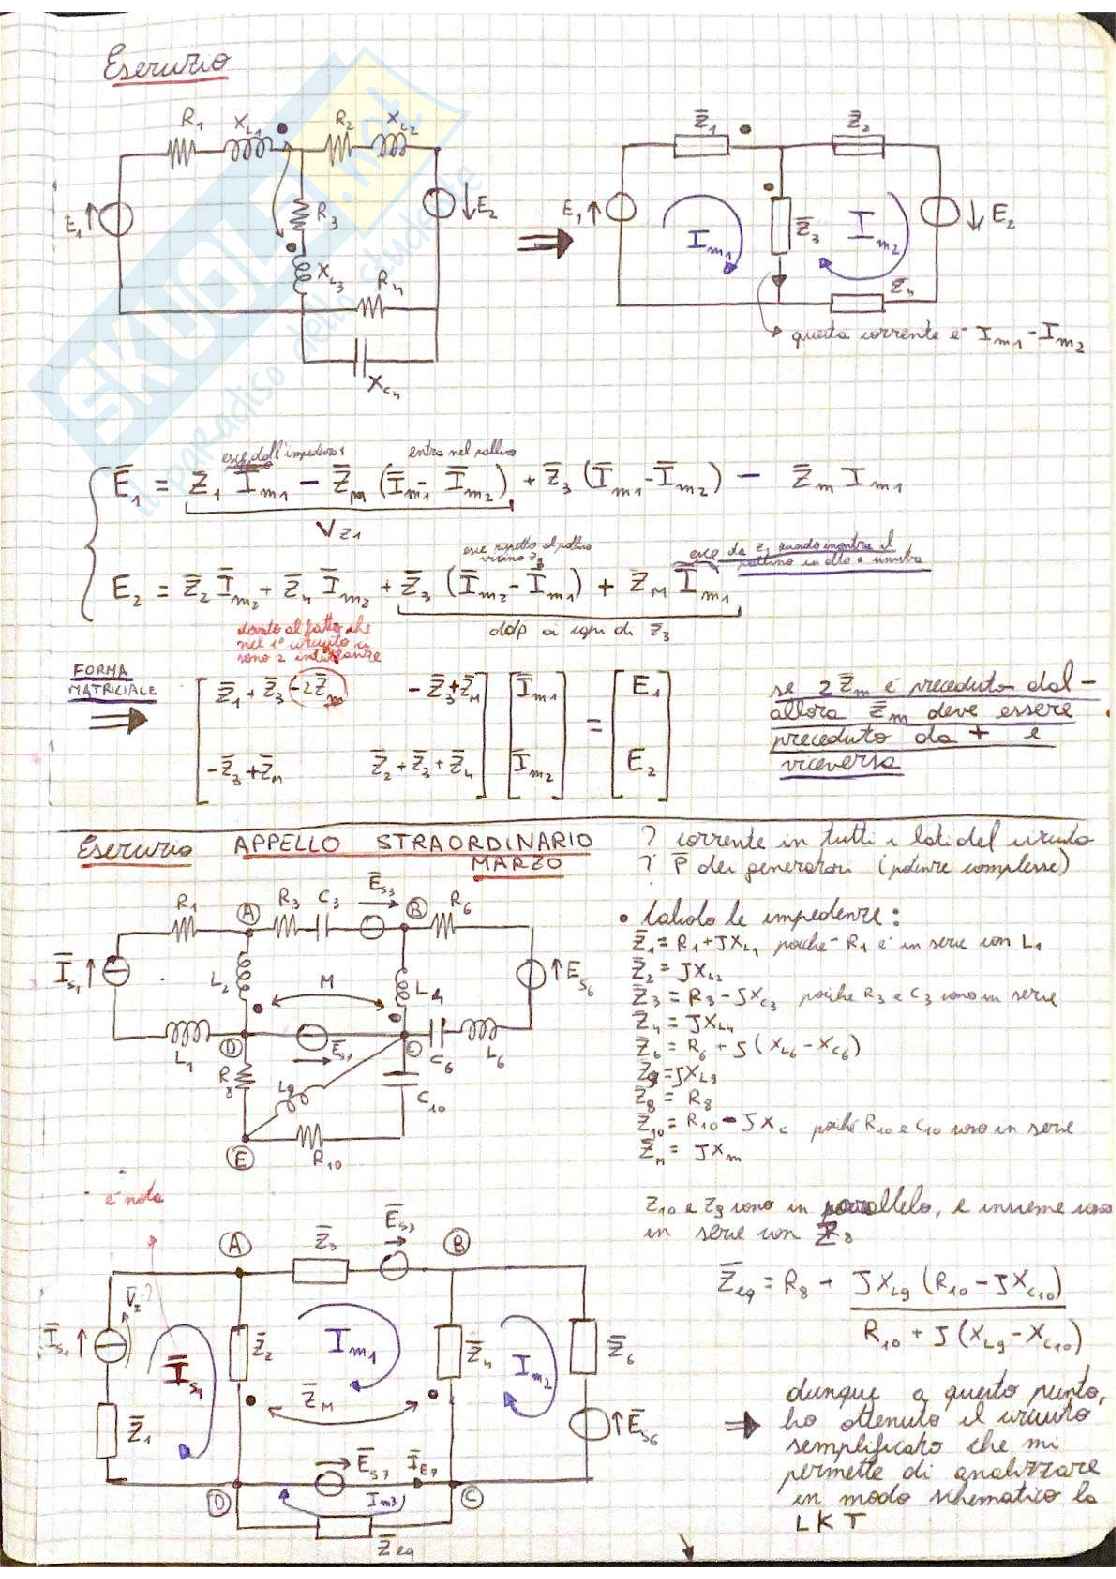 Esercizio
R₁ X_L1 R₂ X_L2
E₁ R₃ E₂
X_L3 R₄
X_C4
Z̄₁ Z̄₂
E₁ I_m1 Z̄₃ I_m2 E₂
Z₄
questa corrente è I_m1 - I_m2
SKUOLA.net
il paradiso dello studente
esce dall'impedenza entra nel pallino
Ē₁ = Z̄₁ Ī_m1 - Z̄_M (Ī_m1 - Ī_m2) + Z̄₃ (Ī_m1 - Ī_m2) - Z̄_m I_m1
V_Z1
esce rispetto al pallino vicino Z₃
esce da Z₁ quando incontra il pallino in alto a sinistra
E₂ = Z̄₂ Ī_m2 + Z̄₄ Ī_m2 + Z̄₃ (Ī_m2 - Ī_m1) + Z_M Ī_m1
ddp ai capi di Z₃
dovuto al fatto che
nel 1° circuito ci
sono 2 induttanze
FORMA
MATRICIALE
Z̄₁ + Z̄₃ - 2Z̄_m - Z̄₃ + Z̄_M Ī_m1 = E₁
- Z̄₃ + Z̄_M Z̄₂ + Z̄₃ + Z̄₄ Ī_m2 E₂
se 2Z̄_m è preceduto dal -
allora Z̄_m deve essere
preceduto da + e
viceversa
Esercizio APPELLO STRAORDINARIO
MARZO
? corrente in tutti i lati del circuito
? P̄ dei generatori (potenze complesse)
R₁ A R₃ C₃ Ē_S3 B R₆
Ī_S1 L₂ M L₄ E_S6
L₁ D Ē_S7 C C₆ L₆
R₈ L₉ C₁₀
E R₁₀
• Calcolo le impedenze:
Z̄₁ = R₁ + JX_L1 poiché R₁ è in serie con L₁
Z̄₂ = JX_L2
Z̄₃ = R₃ - JX_C3 poiché R₃ e C₃ sono in serie
Z̄₄ = JX_L4
Z̄₆ = R₆ + J (X_L6 - X_C6)
Z̄₉ = JX_L9
Z̄₈ = R₈
Z̄₁₀ = R₁₀ - JX_C poiché R₁₀ e C₁₀ sono in serie
Z̄_M = JX_m
è nota
Z₁₀ e Z₉ sono in parallelo, e insieme sono
in serie con Z₈
Z̄_eq = R₈ + JX_L9 (R₁₀ - JX_C10)
R₁₀ + J (X_L9 - X_C10)
A Z̄₃ Ē_S3 B
Ī_S1 Ī_S1 Z̄₂ I_m1 Z̄₄ I_m2 Z̄₆
Z̄₁ Z̄_M Ē_S6
D Ē_S7 Ī_E7 C
I_m3
Z̄_eq
dunque a questo punto,
ho ottenuto il circuito
semplificato che mi
permette di analizzare
in modo schematico la
LKT